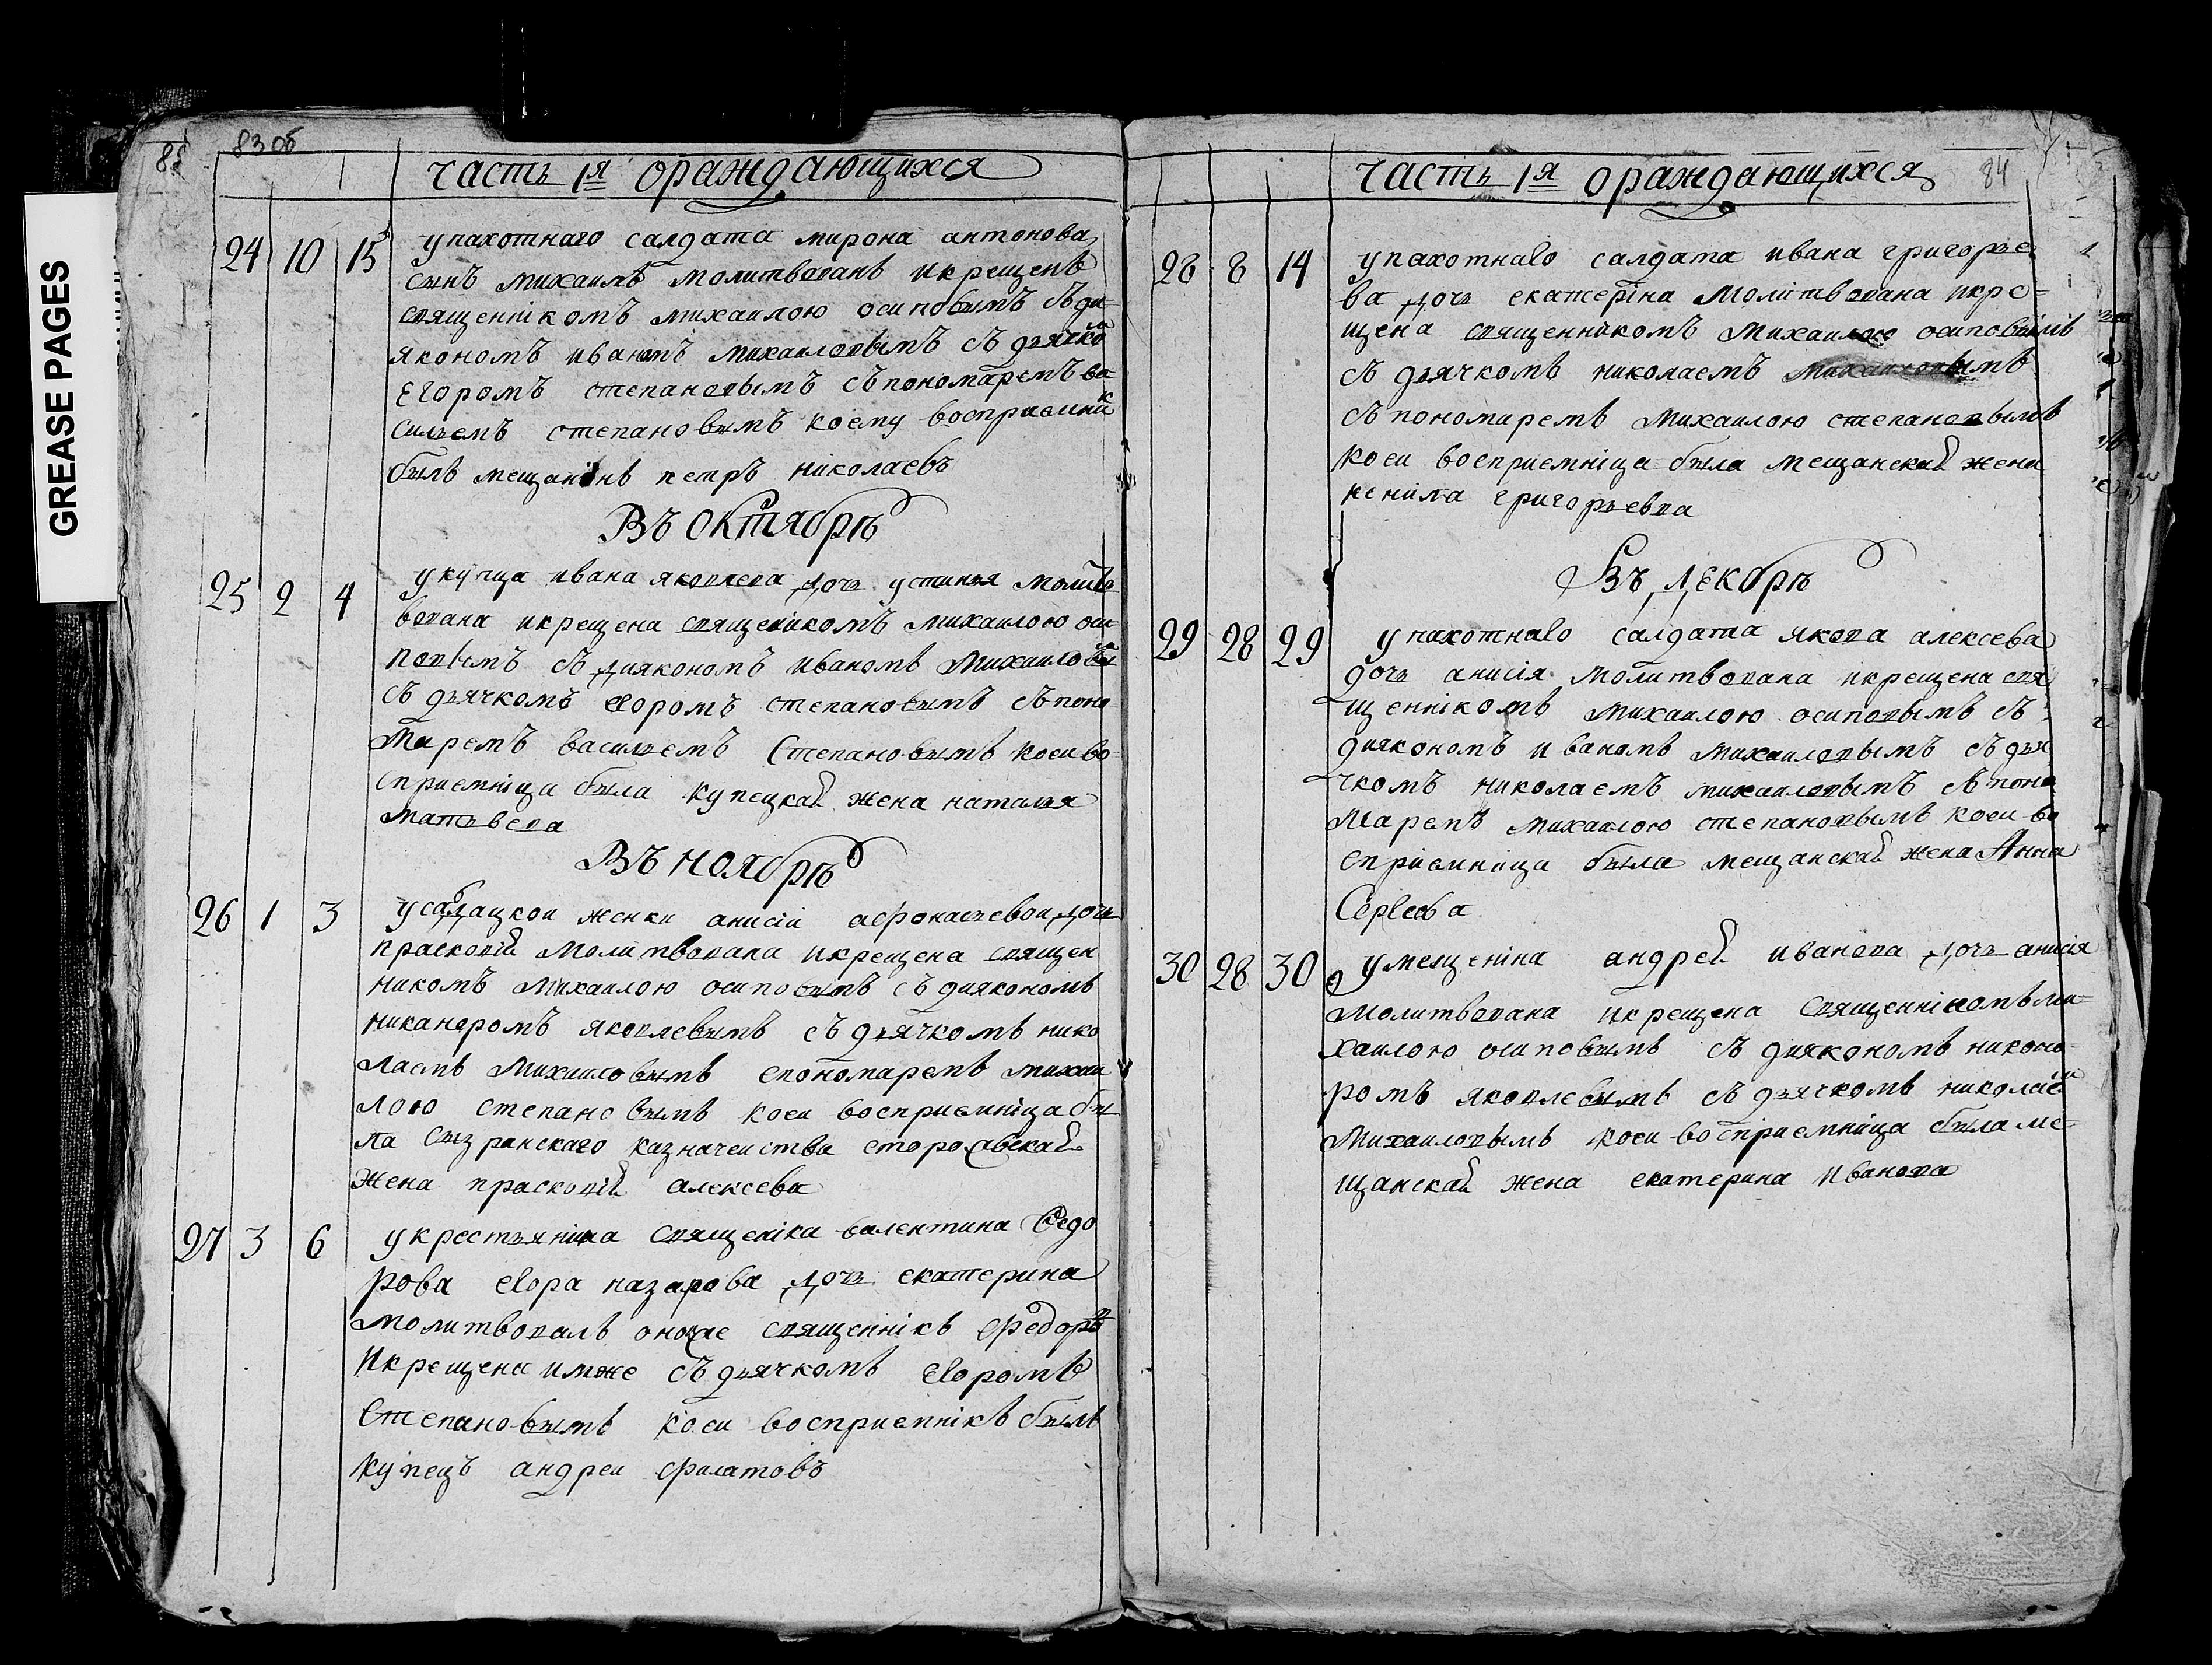 GREASE PAGES
83 об
часть 1я ораждающихся
24 10 15 упахотнаго салдата мирона антонова
сынъ михаилъ молитвованъ икрещенъ
священнікомъ михаилою осиповымъ съди
якономъ иваномъ михаиловымъ съ дьячко
м
Егоромъ степановымъ съпономаремъ ва
сильемъ степановымъ коему восприемни
к
былъ мещанінъ петръ ніколаевъ
Въ октябрѣ
25 2 4 укупца ивана яковлева дочь устинья молит
вована икрещена священікомъ михаилою оси
повымъ съ диякономъ иваномъ Михаиловы
съ дьячкомъ егоромъ степановымъ съпоно
маремъ васильемъ Степановымъ коеи во
сприемніца была купецкай жена наталья
матьвева
Въ ноябрѣ
26 1 3 усалдацкои женки анисіи афонасьевои дочь
прасковій молитвована икрещена священ
никомъ михаилою осиповымъ съ диякономъ
никанаромъ яковлевымъ съ дьячкомъ нико
лаемъ Михаиловымъ спономаремъ михаи
лою степановымъ коеи восприемніца бы
ла сызранскаго казначеиства сторожевскай
жена прасковій алексева
27 3 6 укрестьяніна священіка валентина Федо
рова егора назарова дочь екатерина
молитвовалъ оноже священнікъ Федоръ
икрещена имже съ дьячкомъ егоромъ
Степановымъ коеи восприемнікъ былъ
купецъ андреи филатовъ
часть 1я ораждающихся 84
28 8 14 упахотнаго салдата ивана григорье
ва дочь екатеріна молитвована икре=
щена священникомъ Михаилою осиповымъ
съ дьячкомъ николаемъ михаиловымъ
съ пономаремъ михаилою степановымъ
коеи восприемніца была мещанскай жена
ненила григорьевва
Въ декабрѣ
29 28 29 упахотнаго салдата якова алексева
дочь анисія молитвована икрещена свя
щеннікомъ михаилою осиповымъ съ
дияконномъ иваномъ михаиловымъ съ дья
чкомъ николаемъ михаиловымъ съ поно
маремъ михаилою степановымъ коеи во
сприемніца была мещанскай жена Анна
Сергеева
30 28 30 умещеніна андрей иванова дочь анисія
молитвована икрещена священнікомъ ми=
хаилою осиповымъ съ дияконномъ никоно=
ромъ яковлевымъ съ дьячкомъ николае
м
Михаиловымъ коеи восприемница была ме=
щанскай жена екатерина иванова